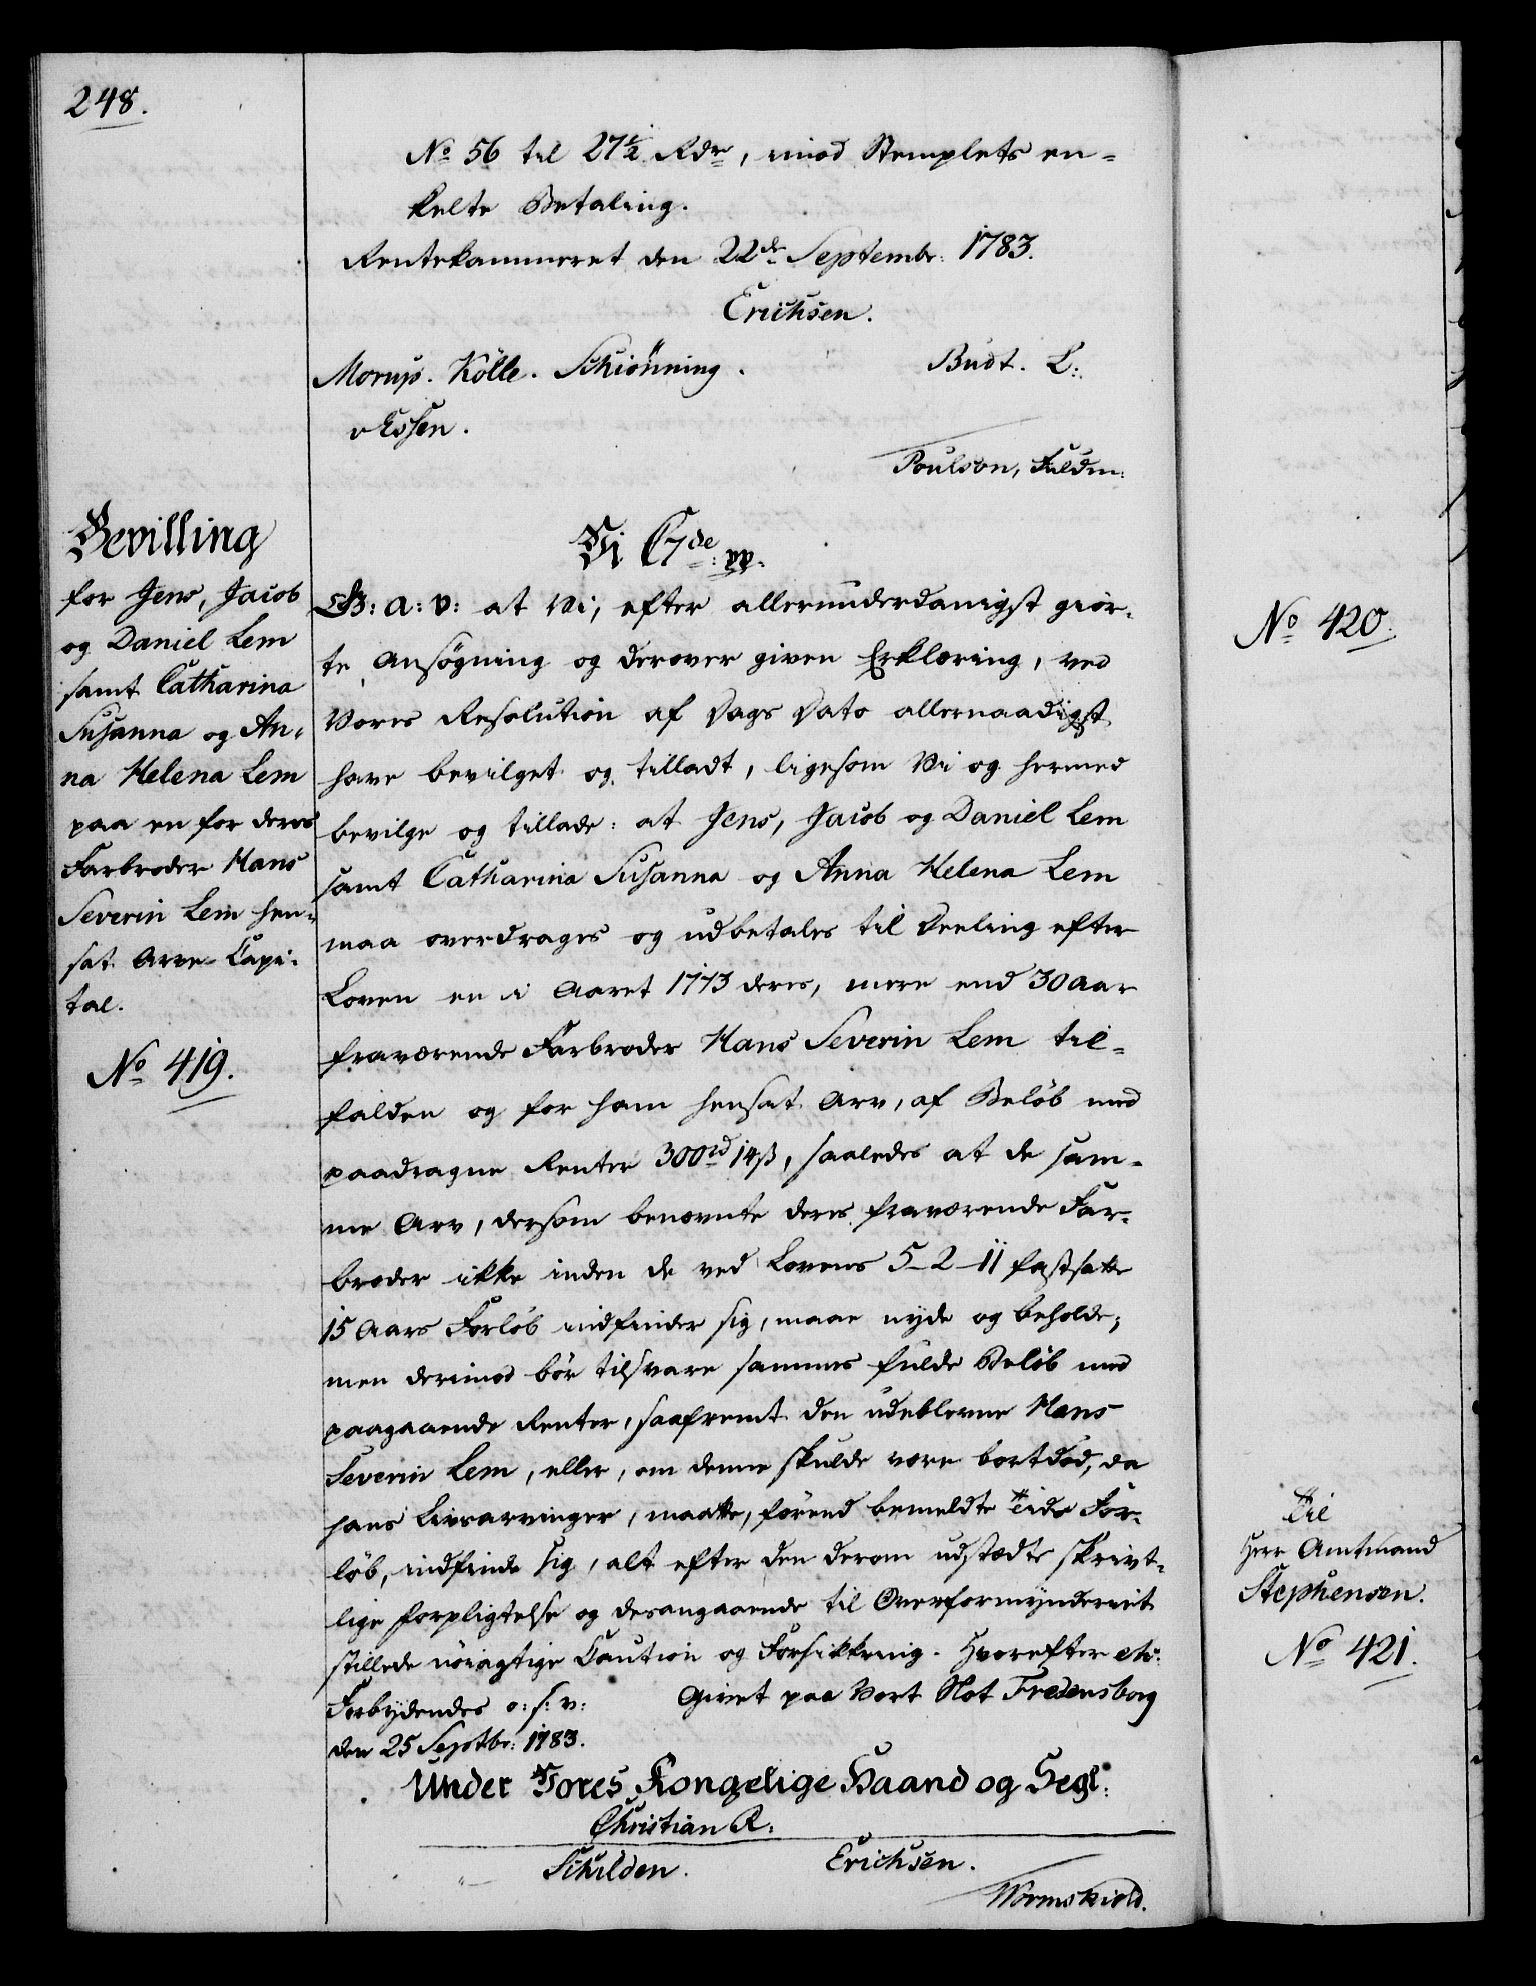 248.
No 56 til 27½ Rdr, imod Stemplets en-
kelte Betaling.
Rentekammeret den 22de Septembr: 1783.
Erichsen.
Morup. Kölle. Schiönning. Budt. L:
v Essen.
Poulson, Fuldm:
Bevilling
for Jens, Jacob
og Daniel Lem
samt Catharina
Susanna og An-
na Helena Lem
paa en for deres
Farbroder Hans
Severin Lem hen-
sat Arve-Capi-
tal.
No 419.
Vi C 7de pp.
G: a: v: at Vi, efter allerunderdanigst giör-
te Ansögning og derover given Erklæring, ved
Vores Resolution af Dags Dato allernaadigst
have bevilget og tilladt, ligesom Vi og hermed
bevilge og tillade: at Jens, Jacob og Daniel Lem
samt Catharina Susanna og Anna Helena Lem
maa overdrages og udbetales til Deeling efter
Loven en i Aaret 1773 deres, mere end 30 Aar
fraværende Farbroder Hans Severin Lem til-
falden og for ham hensat Arv, af Beløb med
paadragne Renter 300rd 14ß, saaledes at de sam-
me Arv, dersom benævnte deres fraværende Far-
broder ikke inden de ved Lovens 5-2-11 fastsatte
15 Aars Forløb indfinder sig, maae nyde og beholde;
men derimod bör tilsvare sammes fulde Beløb med
paagaaende Renter, saafremt den udeblevne Hans
Severin Lem, eller, om denne skulde være bortdöd, da
hans Livsarvinger, maatte, förend bemeldte Tids For-
löb, indfinde sig, alt efter den derom udstædte skrivt-
lige Forpligtelse og desangaaende til Overformynderiet
stillede nöiagtige Caution og Forsikkring. Hvorefter etc:
Forbydendes o: s: v: Givet paa Vort Slot Fredensborg
den 25 Septbr: 1783.
Under Vores Kongelige Haand og Segl.
Christian R.
Schilden. Erichsen.
Wormskiold.
No 420.
Til
Herr Amtmand
Stephensen.
No 421.